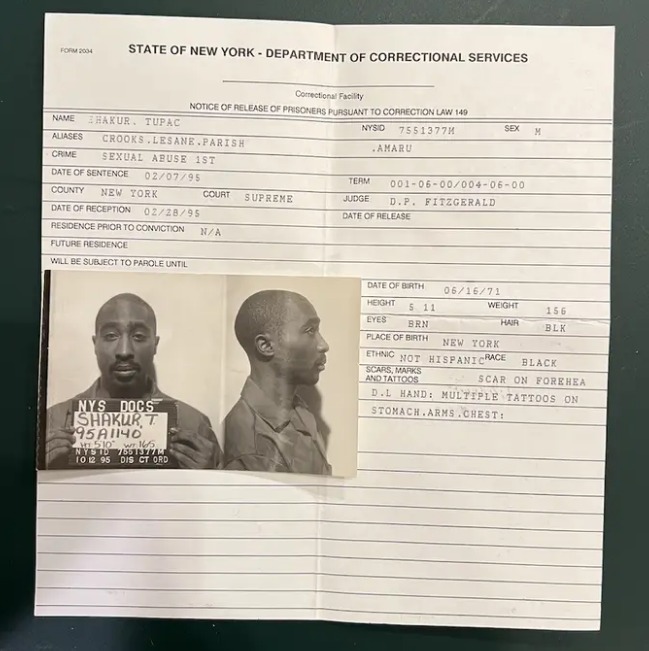 FORM 2034
STATE OF NEW YORK - DEPARTMENT OF CORRECTIONAL SERVICES
Correctional Facility
NOTICE OF RELEASE OF PRISONERS PURSUANT TO CORRECTION LAW 149
NAME SHAKUR. TUPAC NYSID 7551377M SEX M
ALIASES CROOKS.LESANE.PARISH .AMARU
CRIME SEXUAL ABUSE 1ST
DATE OF SENTENCE 02/07/95 TERM 001-06-00/004-06-00
COUNTY NEW YORK COURT SUPREME JUDGE D.P. FITZGERALD
DATE OF RECEPTION 02/28/95 DATE OF RELEASE
RESIDENCE PRIOR TO CONVICTION N/A
FUTURE RESIDENCE
WILL BE SUBJECT TO PAROLE UNTIL
DATE OF BIRTH 06/16/71
HEIGHT 5 11 WEIGHT 156
EYES BRN HAIR BLK
PLACE OF BIRTH NEW YORK
ETHNIC NOT HISPANIC RACE BLACK
SCARS, MARKS
AND TATTOOS SCAR ON FOREHEA
D.L HAND: MULTIPLE TATTOOS ON
STOMACH.ARMS.CHEST:
NYS DOCS
SHAKUR, T.
95A1140
HT: 5'10" WT: 165
NYSID 7551377M
10 12 95 DIS CT ORD